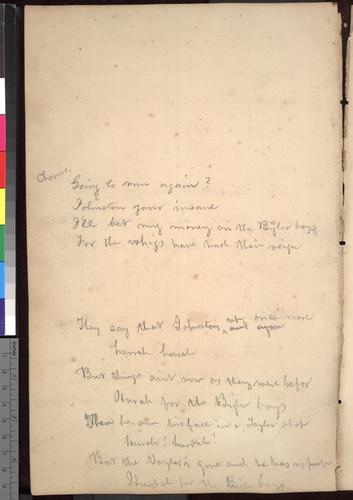 Chorus.
Going to run again?
Johnston your insane
I'll bet my money on the Bigler boys
For the whigs have had their reign
They say that Johnston, once more
hurrah hurrah
But things aint now as they were befor
Hurrah for the Bigler boys
When he come in a Taylor shot
hurah! hurrah!
But the Taylor's gone and he has no
Hurrah for the Bigler boys